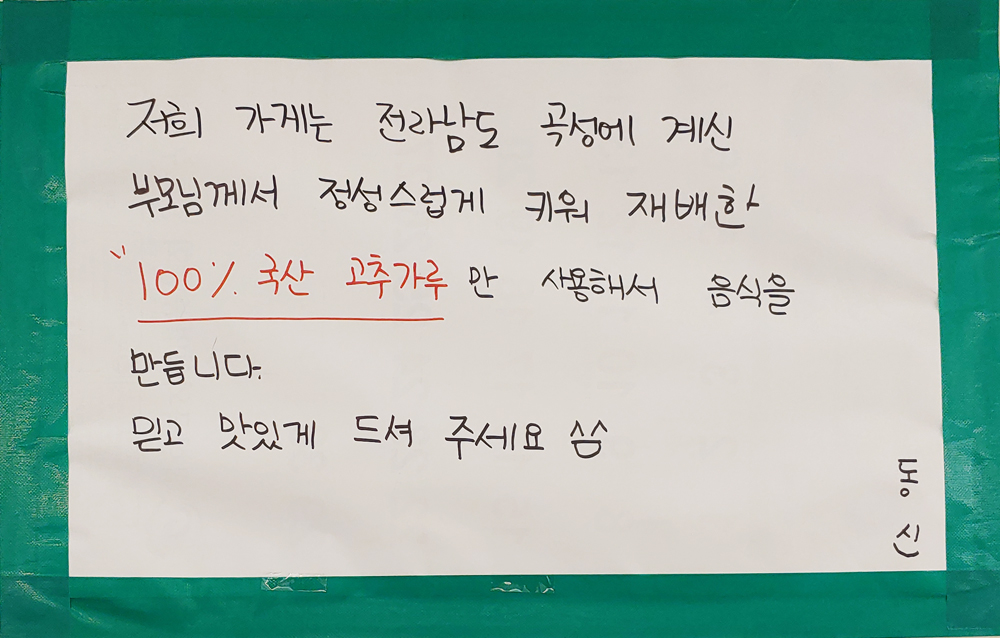 저희 가게는 전라남도 곡성에 계신
부모님께서 정성스럽게 키워 재배한
"100% 국산 고추가루만 사용해서 음식을
만듭니다.
믿고 맛있게 드셔 주세요 ^^
동신